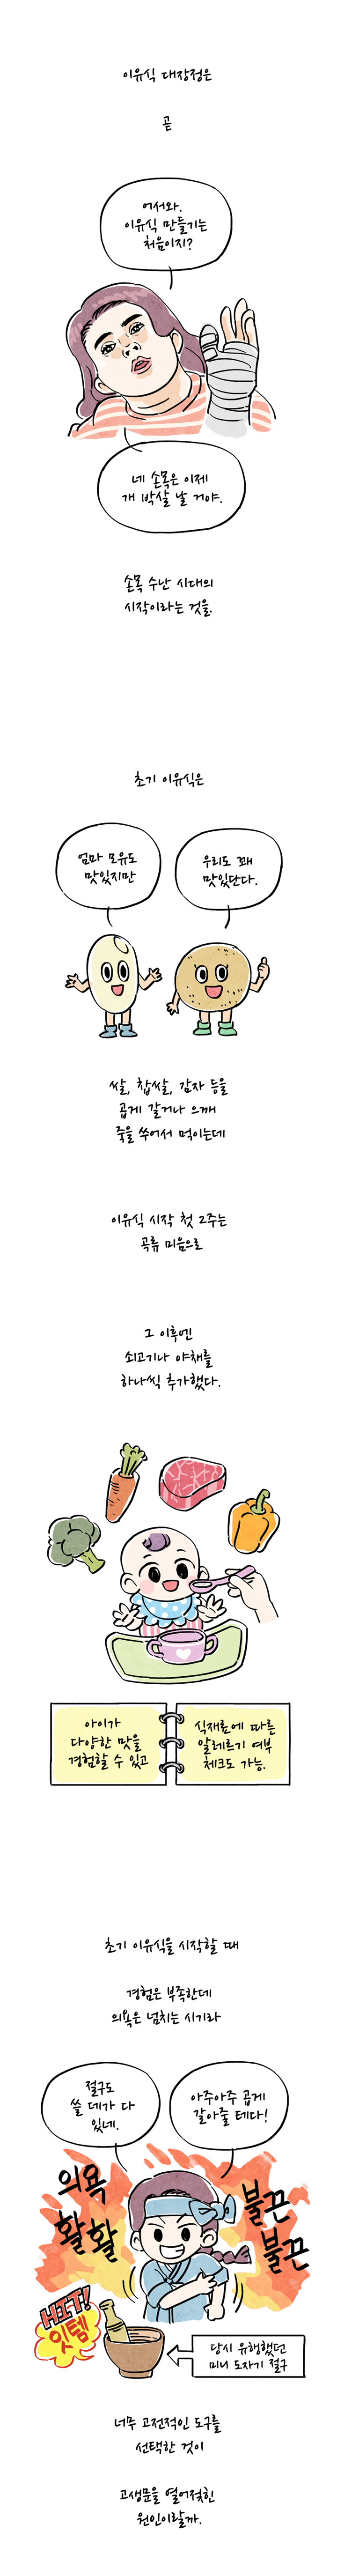 이유식 대장정은
곧
어서와.
이유식 만들기는
처음이지?
네 손목은 이제
개 박살 날 거야.
손목 수난 시대의
시작이라는 것을.
초기 이유식은
엄마 모유도
맛있지만
우리도 꽤
맛있단다.
쌀, 찹쌀, 감자 등을
곱게 갈거나 으깨
죽을 쑤어서 먹이는데
이유식 시작 첫 2주는
곡류 미음으로
그 이후엔
쇠고기나 야채를
하나씩 추가했다.
아이가
다양한 맛을
경험할 수 있고
식재료에 따른
알레르기 여부
체크도 가능.
초기 이유식을 시작할 때
경험은 부족한데
의욕은 넘치는 시기라
절구도
쓸 데가 다
있네.
아주아주 곱게
갈아줄 테다!
의욕
활활
불끈
불끈
HIT!
잇템
당시 유행했던
미니 도자기 절구
너무 고전적인 도구를
선택한 것이
고생문을 열어젖힌
원인이랄까.